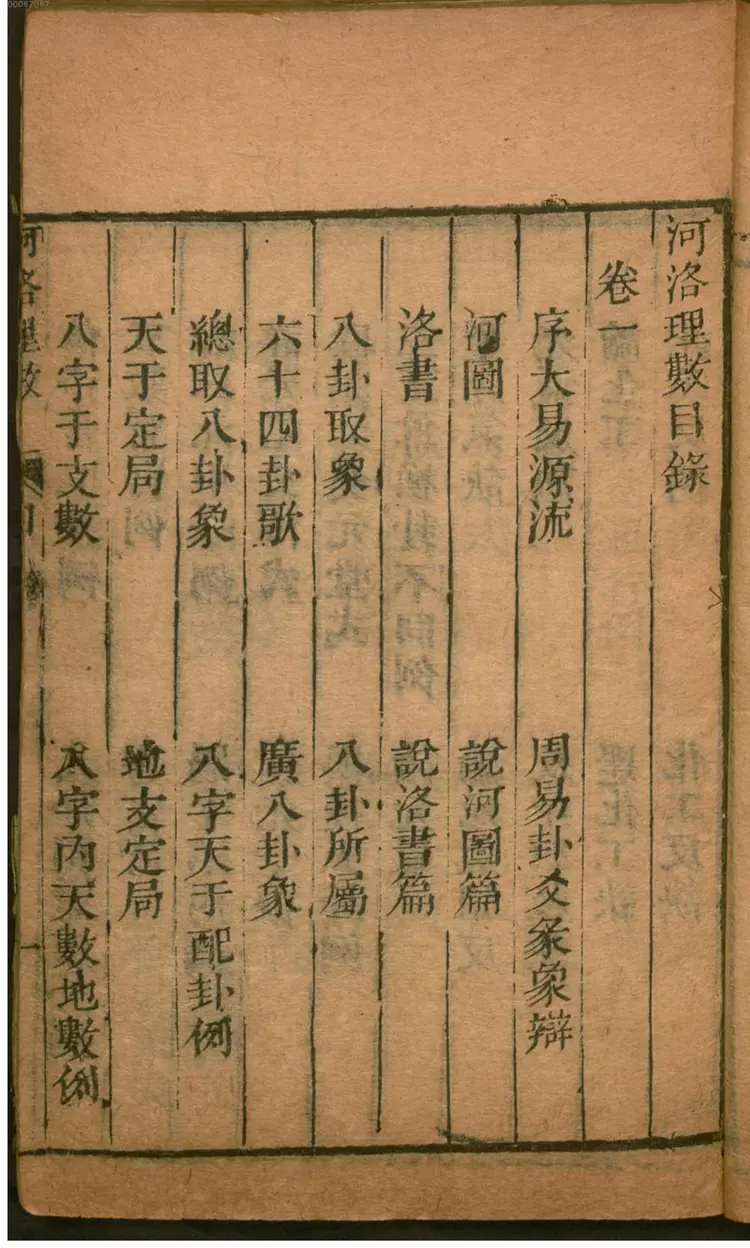 00067067
河洛理數目錄
卷一
序大易源流　周易卦爻彖象辯
河圖　說河圖篇
洛書　說洛書篇
八卦取象　八卦所屬
六十四卦歌　廣八卦象
總取八卦象　八字天于配卦例
天于定局　地支定局
八字于支數　八字內天數地數例
河洛理數　目錄　一